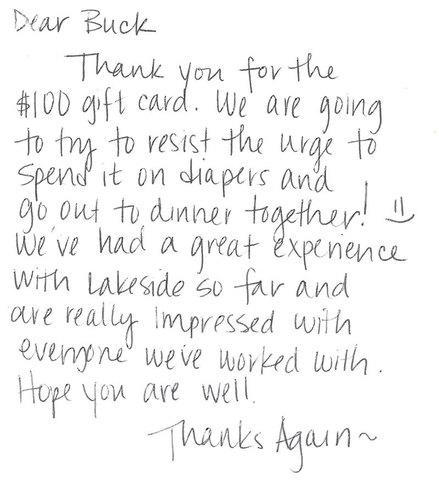 Dear Buck
Thank you for the
$100 gift card. We are going
to try to resist the urge to
spend it on diapers and
go out to dinner together! =)
We've had a great experience
with Lakeside so far and
are really impressed with
everyone we've worked with.
Hope you are well.
Thanks Again~